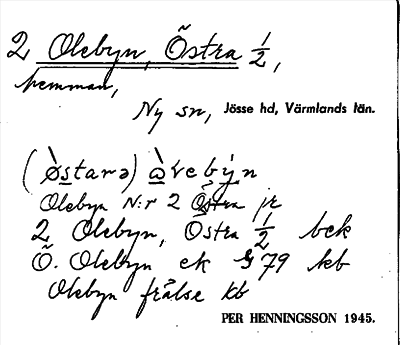 2 Olebyn, Östra ½,
hemman,
Ny sn, Jösse hd, Värmlands län.
(ø̀starə) ὰ̣vebýn
Olebyn N:r 2 Östra jr
2 Olebyn, Östra ½ bek
Ö. Olebyn ek § 79 kb
Olebyn frälse kb
PER HENNINGSSON 1945.